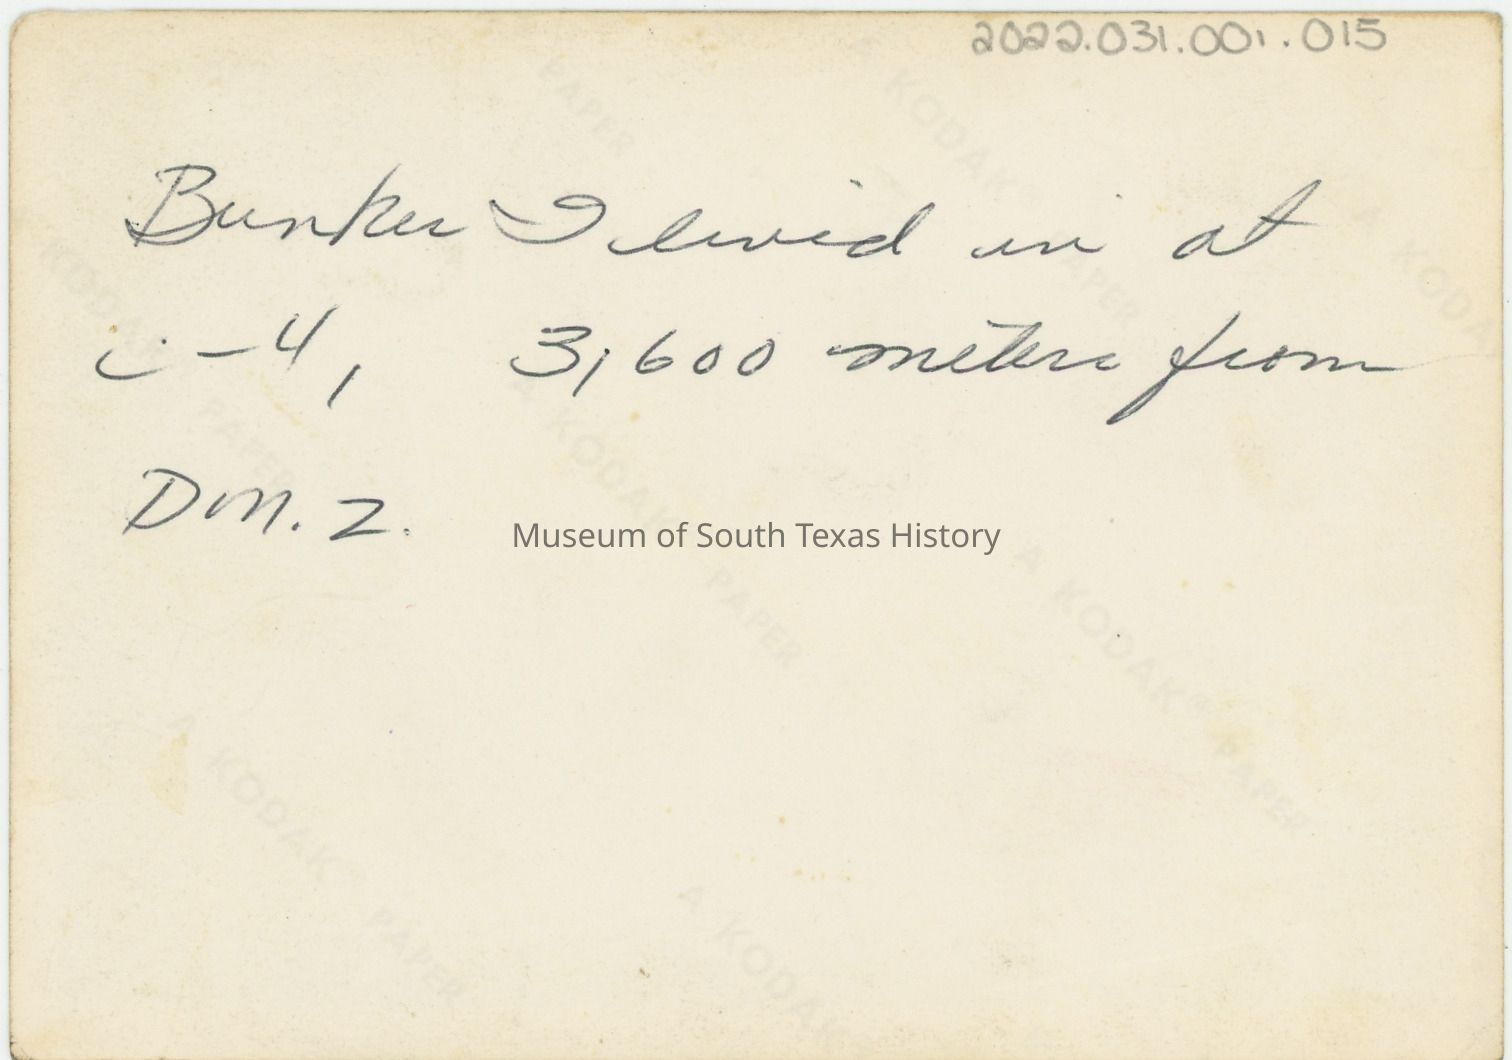 2022.031.001.015
Bunker I livid in at
C-4, 3,600 meters from
Dm. Z.
Museum of South Texas History
A KODAK PAPER
A KODAK PAPER
A KODAK PAPER
A KODAK PAPER
A KODAK PAPER
A KODAK